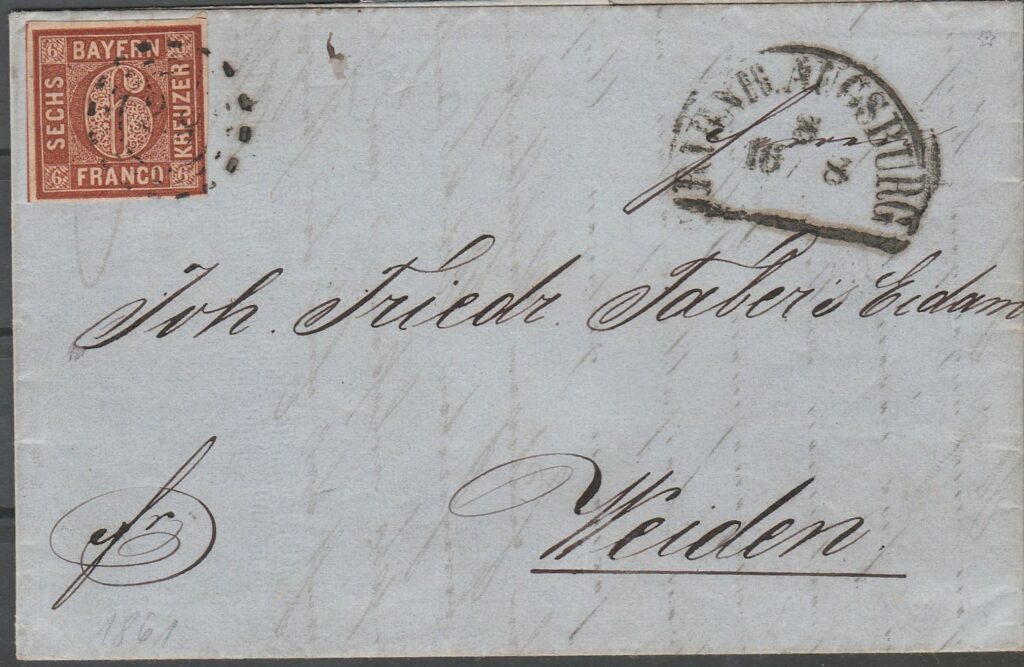 BAYERN
SECHS
KREUZER
FRANCO
6
6
6
6
6
AUGSBURG
18
Joh. Friedr. Faber's Eidam
fr
Weiden.
1861